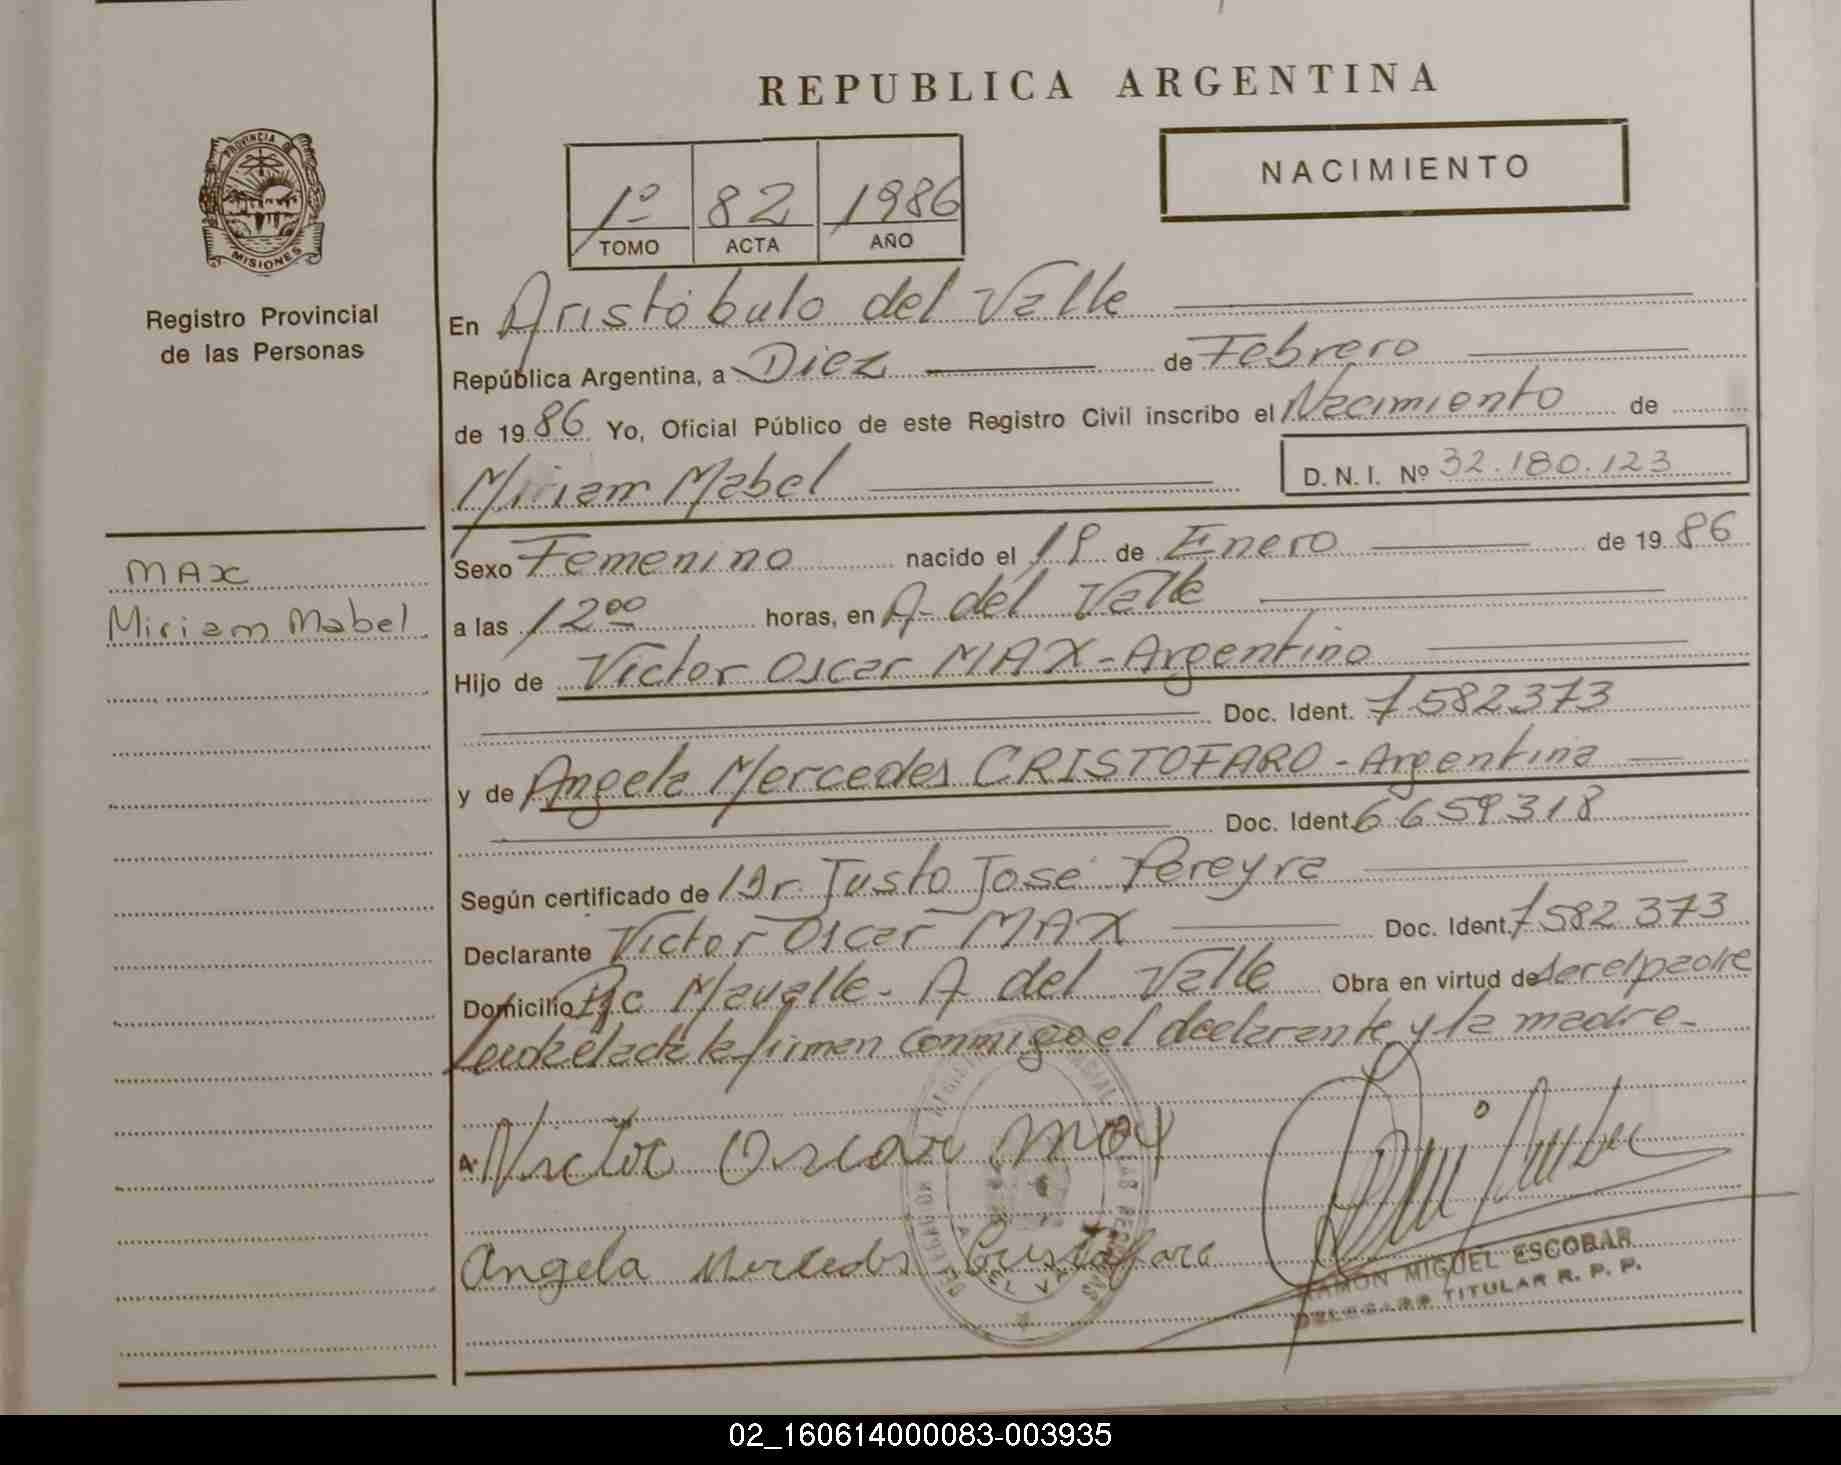 REPUBLICA ARGENTINA
PROVINCIA DE
MISIONES
Registro Provincial
de las Personas
1º 82 1986
TOMO ACTA AÑO
NACIMIENTO
En Aristóbulo del Valle
República Argentina, a Diez de Febrero
de 1986 Yo, Oficial Público de este Registro Civil inscribo el Nacimiento de
Miriam Mabel D. N. I. Nº 32.180.123
MAX
Miriam Mabel
Sexo Femenino nacido el 19 de Enero de 1986
a las 12 00 horas, en A- del Valle
Hijo de Victor Oscar MAX - Argentino
Doc. Ident. 7582373
y de Angela Mercedes CRISTOFARO - Argentina
Doc. Ident. 6659318
Según certificado de Dr. Justo José Pereyra
Declarante Victor Oscar MAX Doc. Ident. 7582373
Domicilio Pic. Mavalle - A del Valle Obra en virtud de ser el padre
Leida el acta la firman conmigo el declarante y la madre-
Victor Oscar Max
Angela Mercedes Cristofaro
RAMON MIGUEL ESCOBAR
DELEGADO TITULAR R. P. P.
02_160614000083-003935